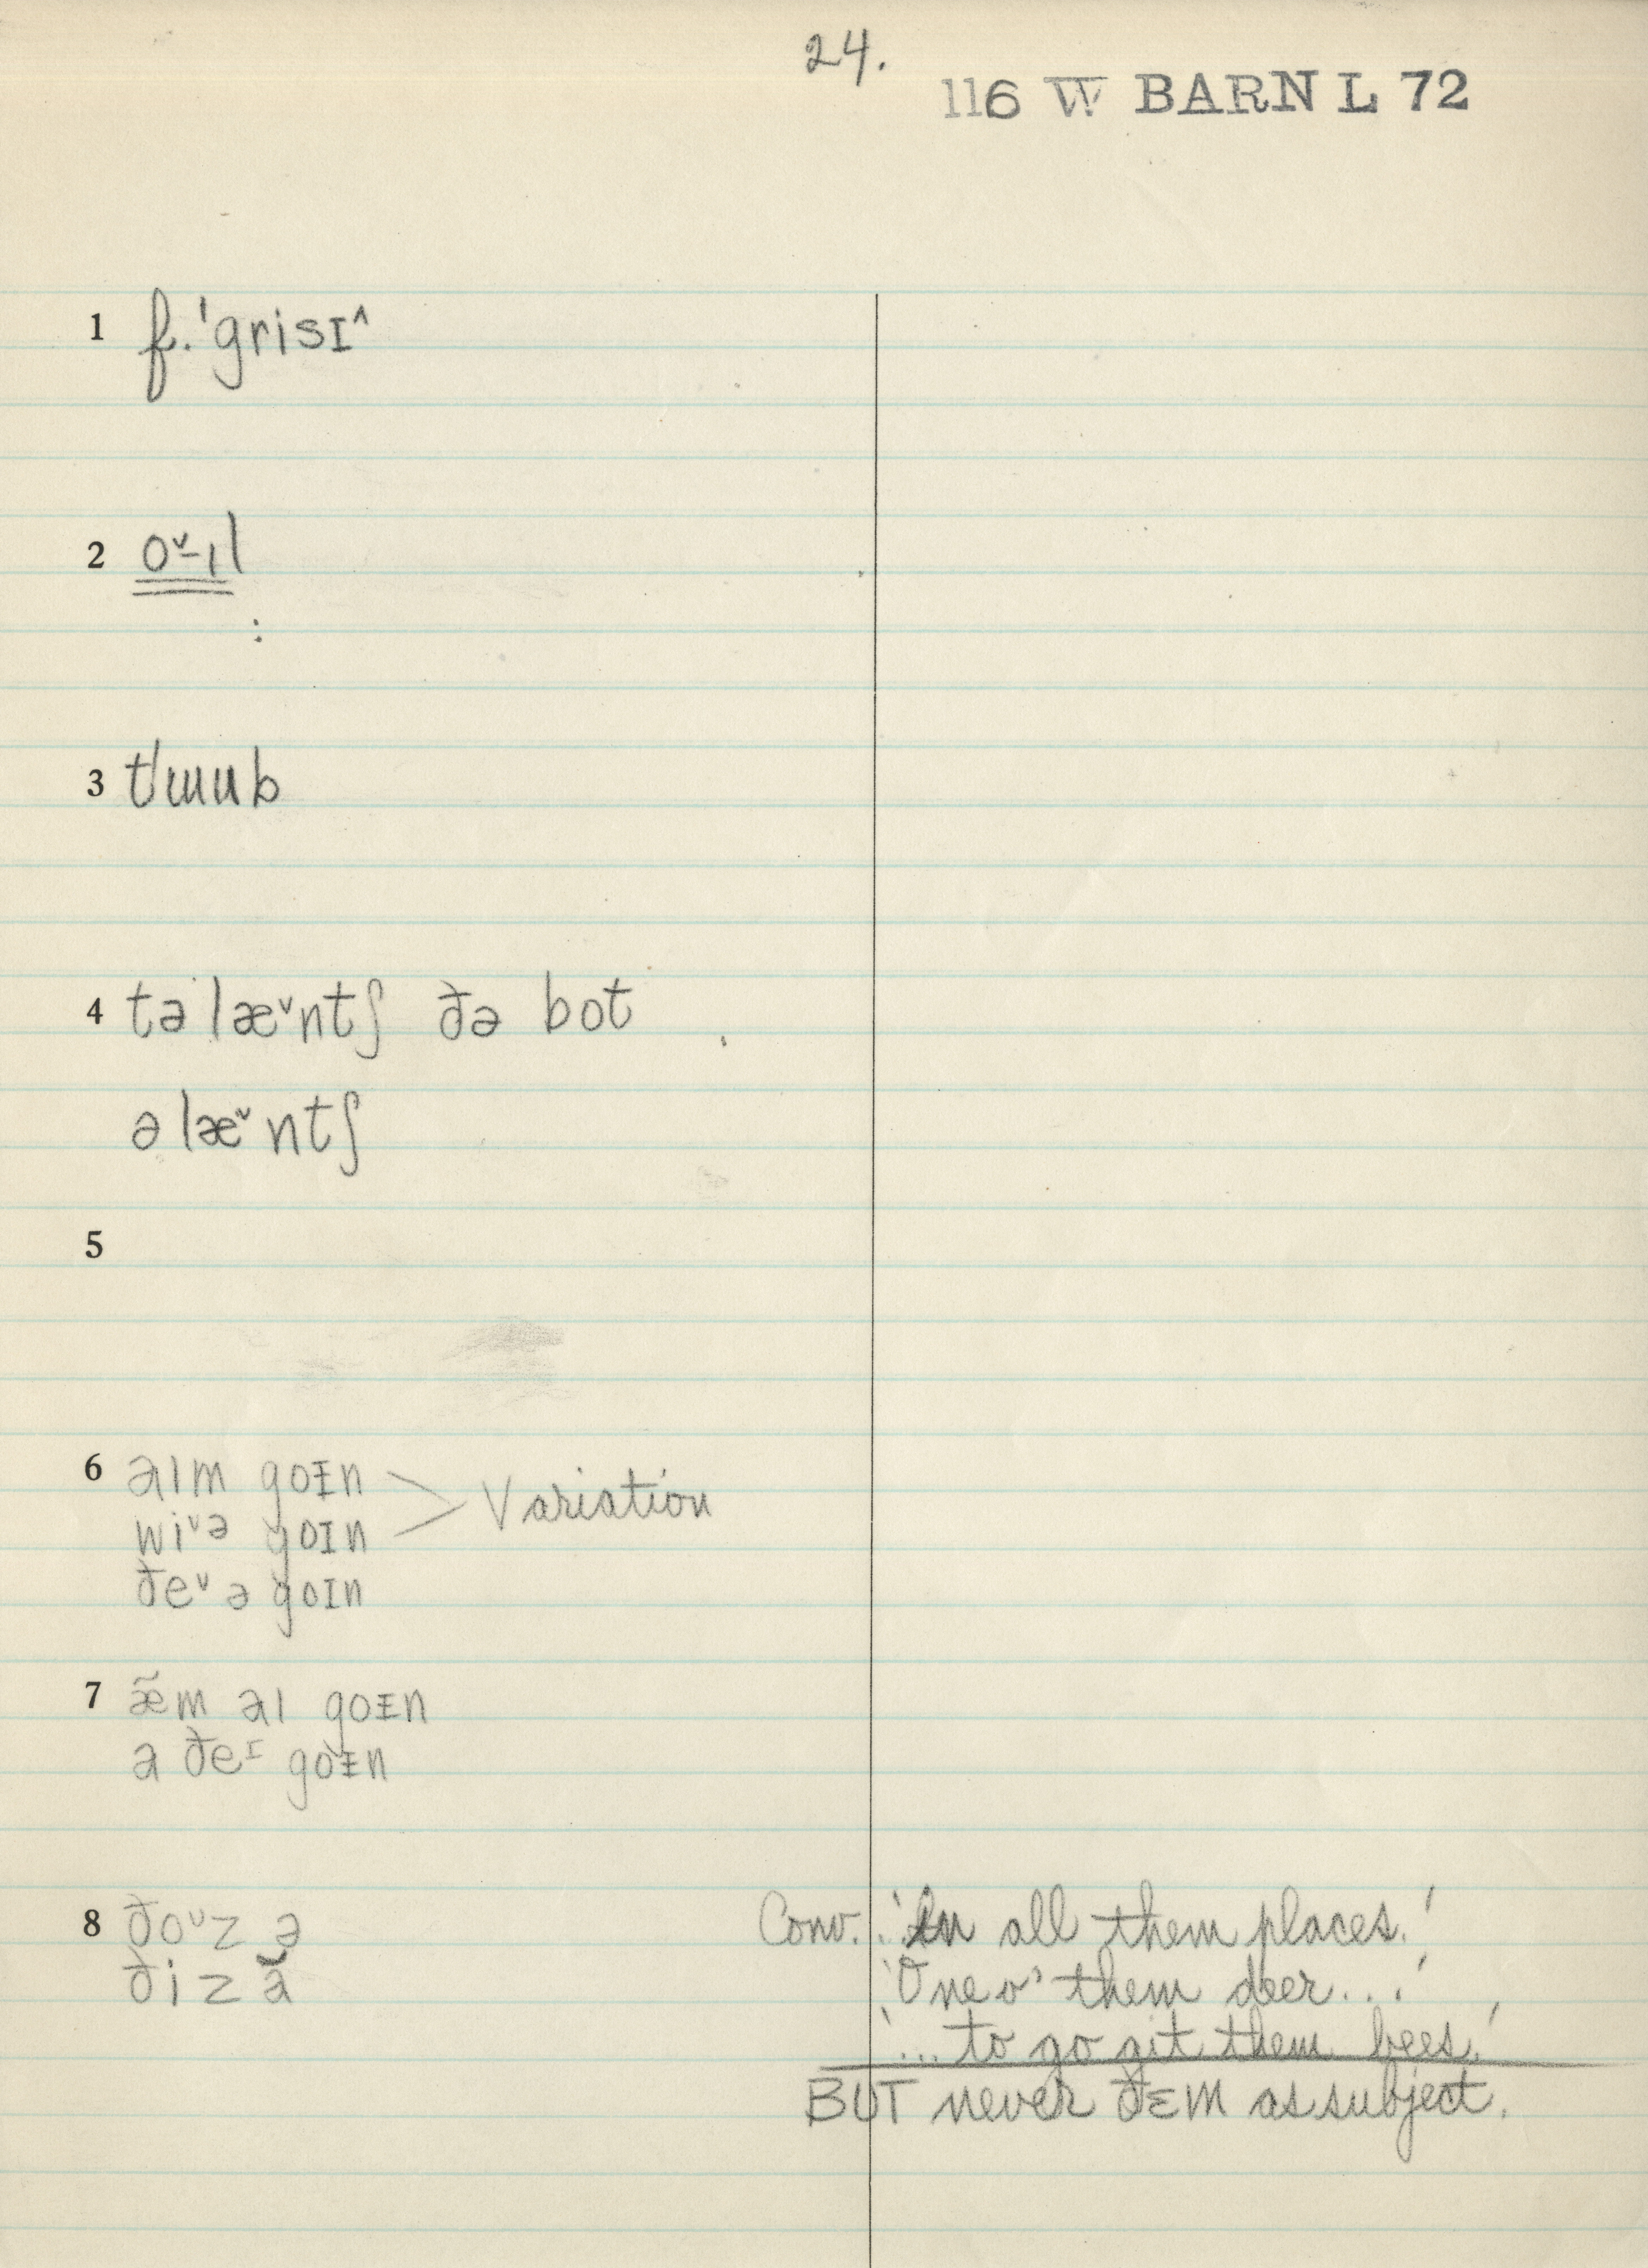 24.
116 W BARN L 72
1 f. ˈgrisɪ^
2 oˇ-ɪl
:
3 tʹɯub
4 tə læˇntʃ ðə bot
ə læˇntʃ
5
6 aɪm goᵻn > Variation
wiˇə goɪn
ðeˇ ə goɪn
7 æ̃m aɪ goᵻn
a ðeᶦ goᵻn
8 ðoˇz ə
ðiz ă
Conv. 'In all them places.'
'One o' them deer...'
'... to go git them bees.'
BUT never ðɛm as subject.